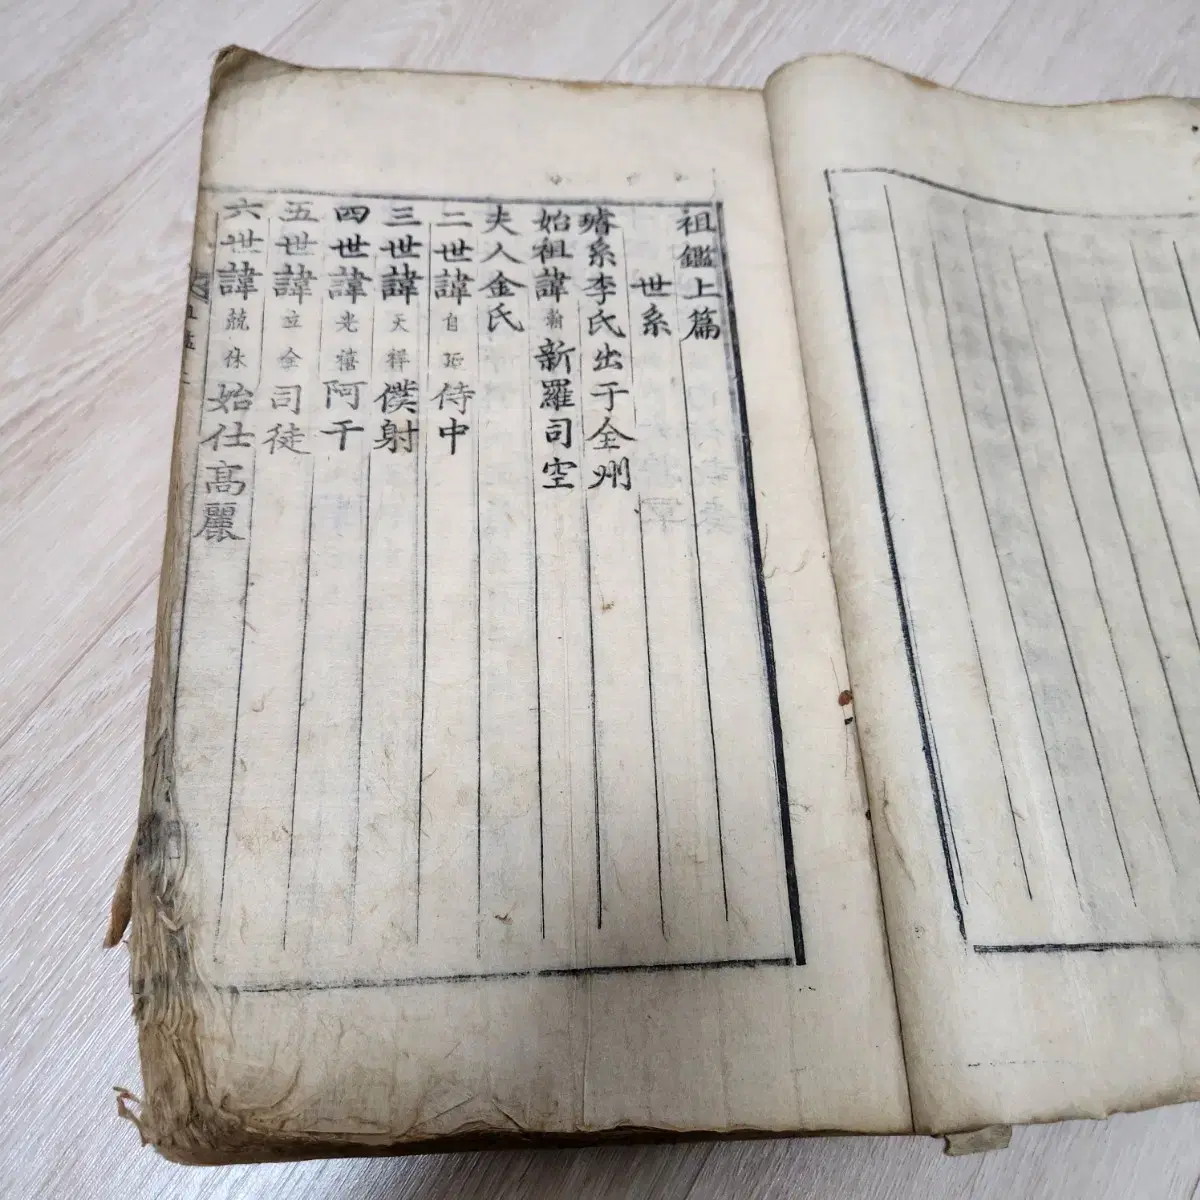 祖鑑上篇
世系
璿系李氏出于全州
始祖諱翰新羅司空
夫人金氏
二世諱自延侍中
三世諱天祥僕射
四世諱光禧阿干
五世諱立全司徒
六世諱兢休始仕高麗